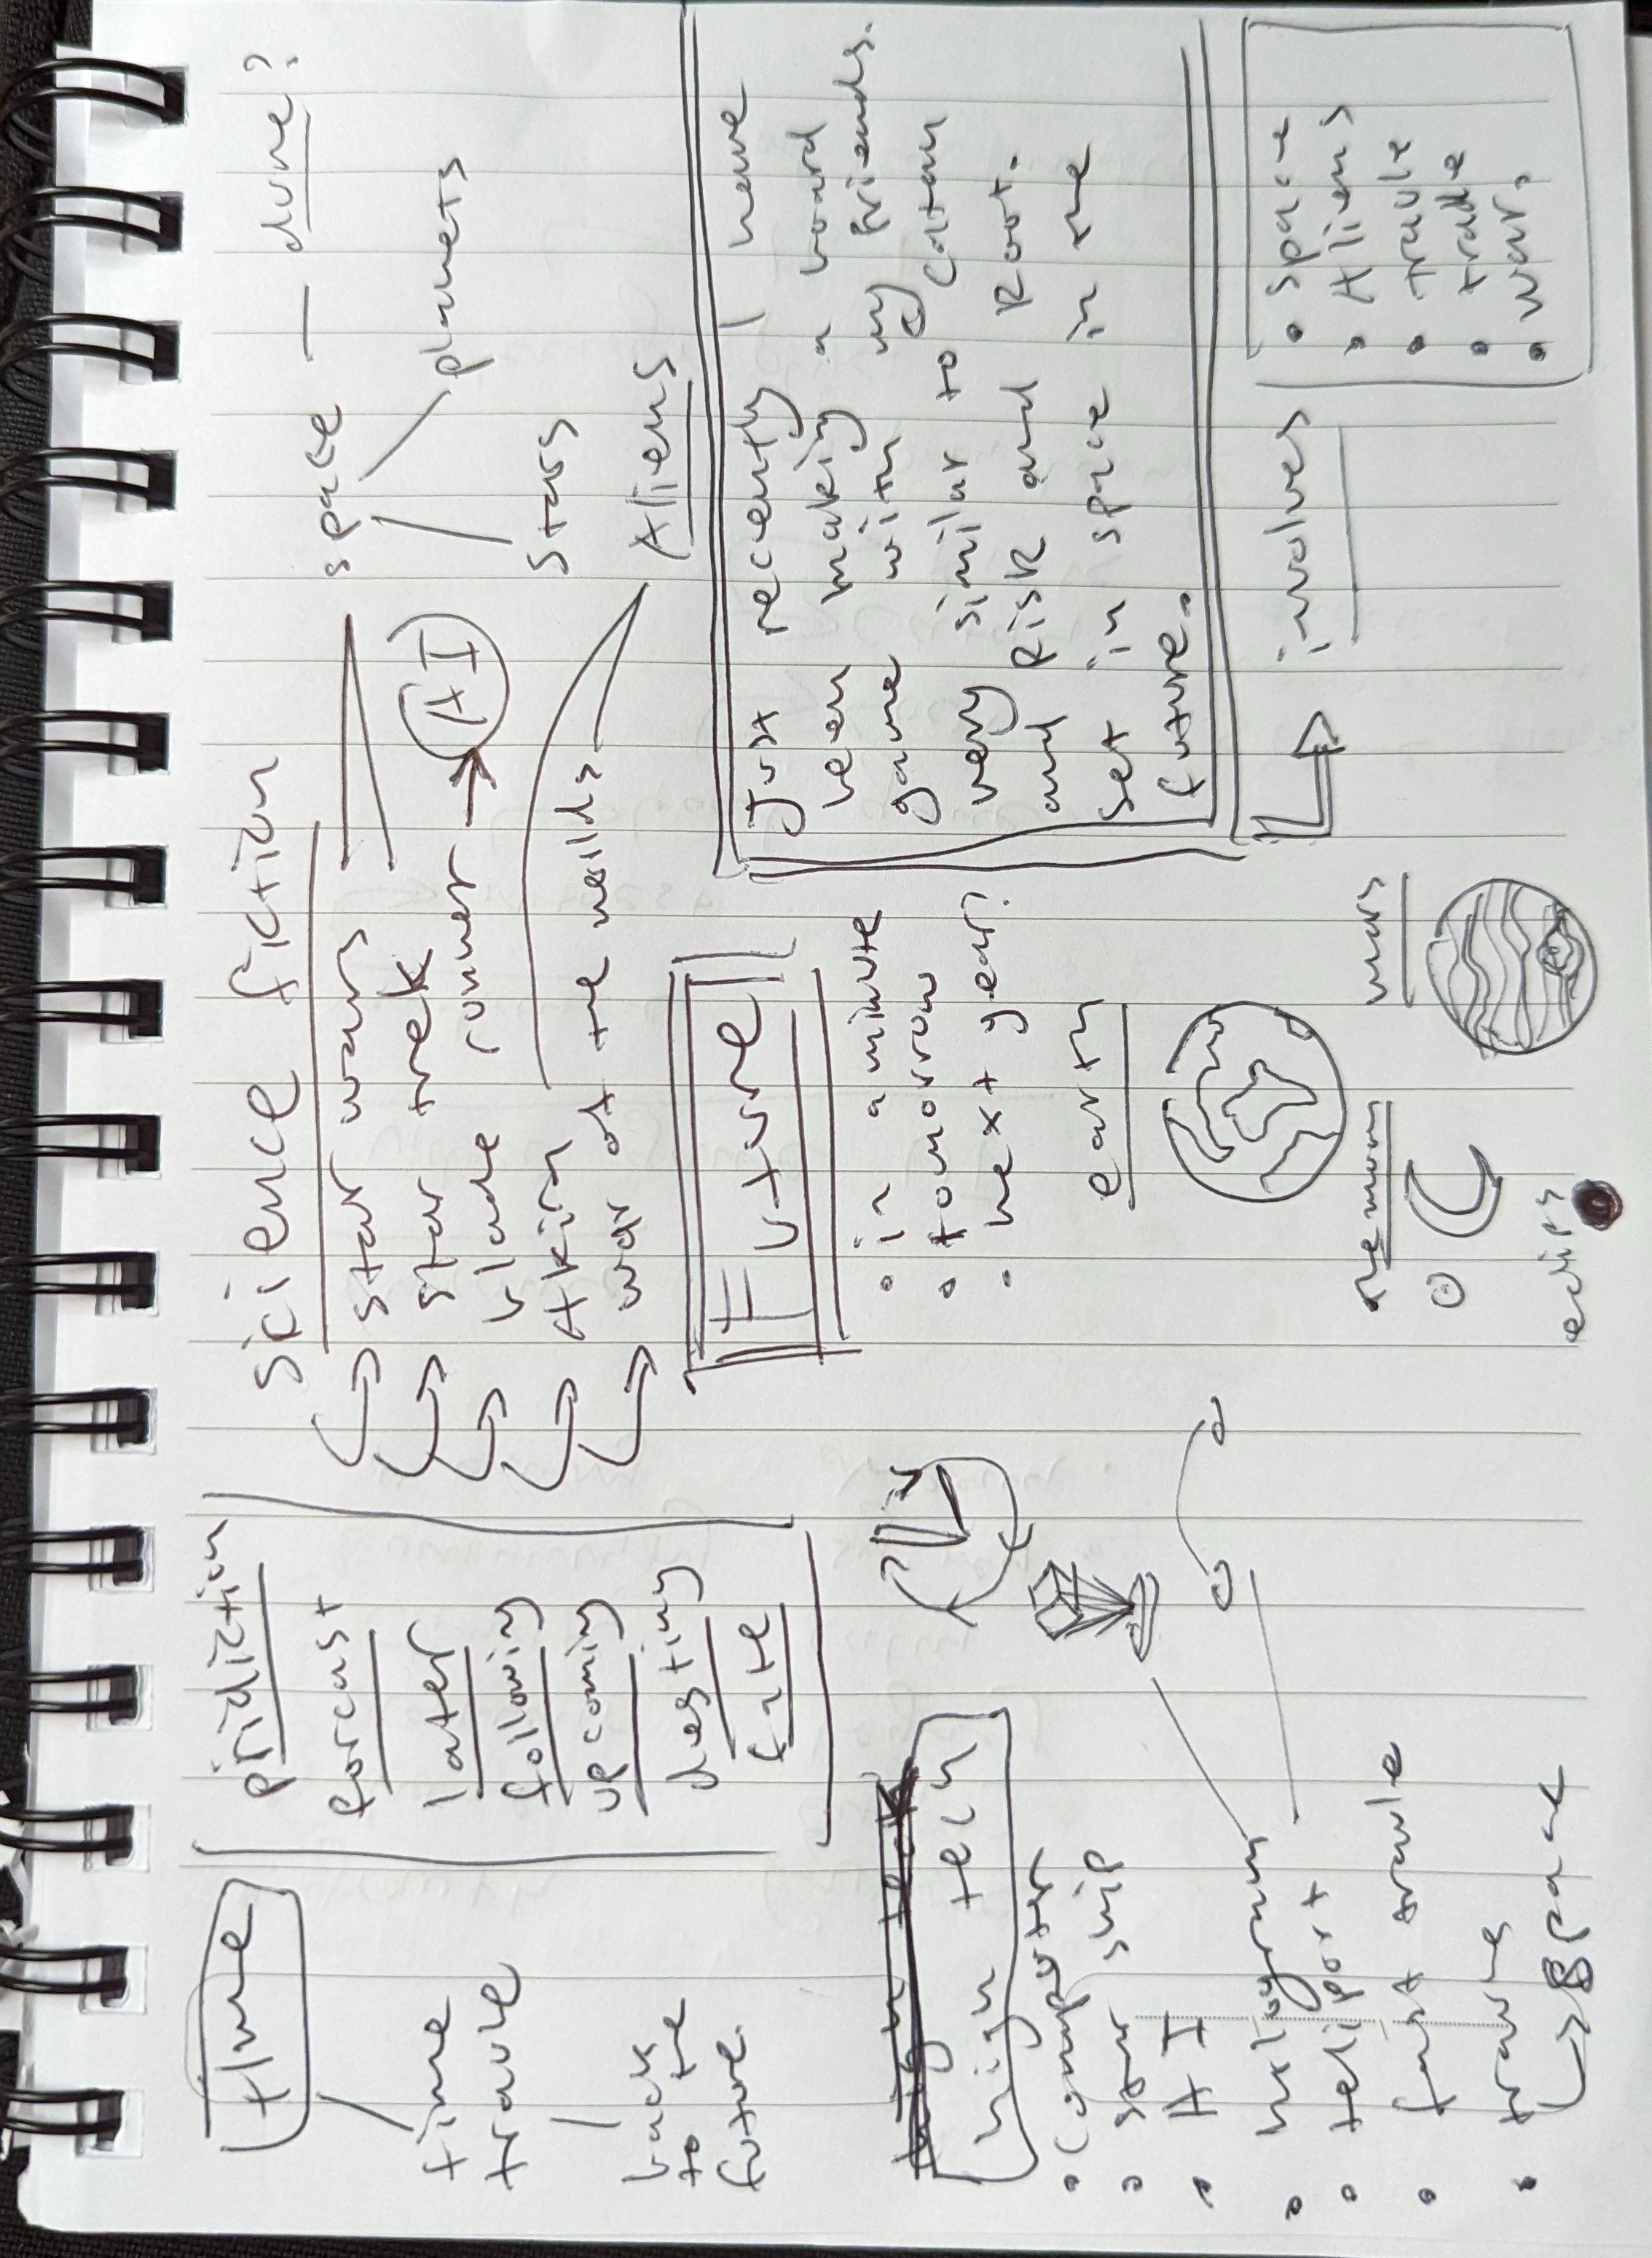 time
time
travle
back
to the
future.
pridiction
forcast
later
following
upcoming
destiny
fate
science fiction
star wars
star trek
blade runner
AI
Akira
war of the worlds
space — dune?
planets
stars
Aliens
Future
• in a minute
• tomorrow
• next year?
earth
the moon
mars
eclips
high teck
high tech
• Computer
• star ship
• AI
• hologram
• teliport
• fast travle
• travle
space
Just recently I have
been making a board
game with my friends.
very similar to Catan
and Risk and Root.
Set in space in the
future.
involves
• space
• Aliens
• travle
• trade
• war.